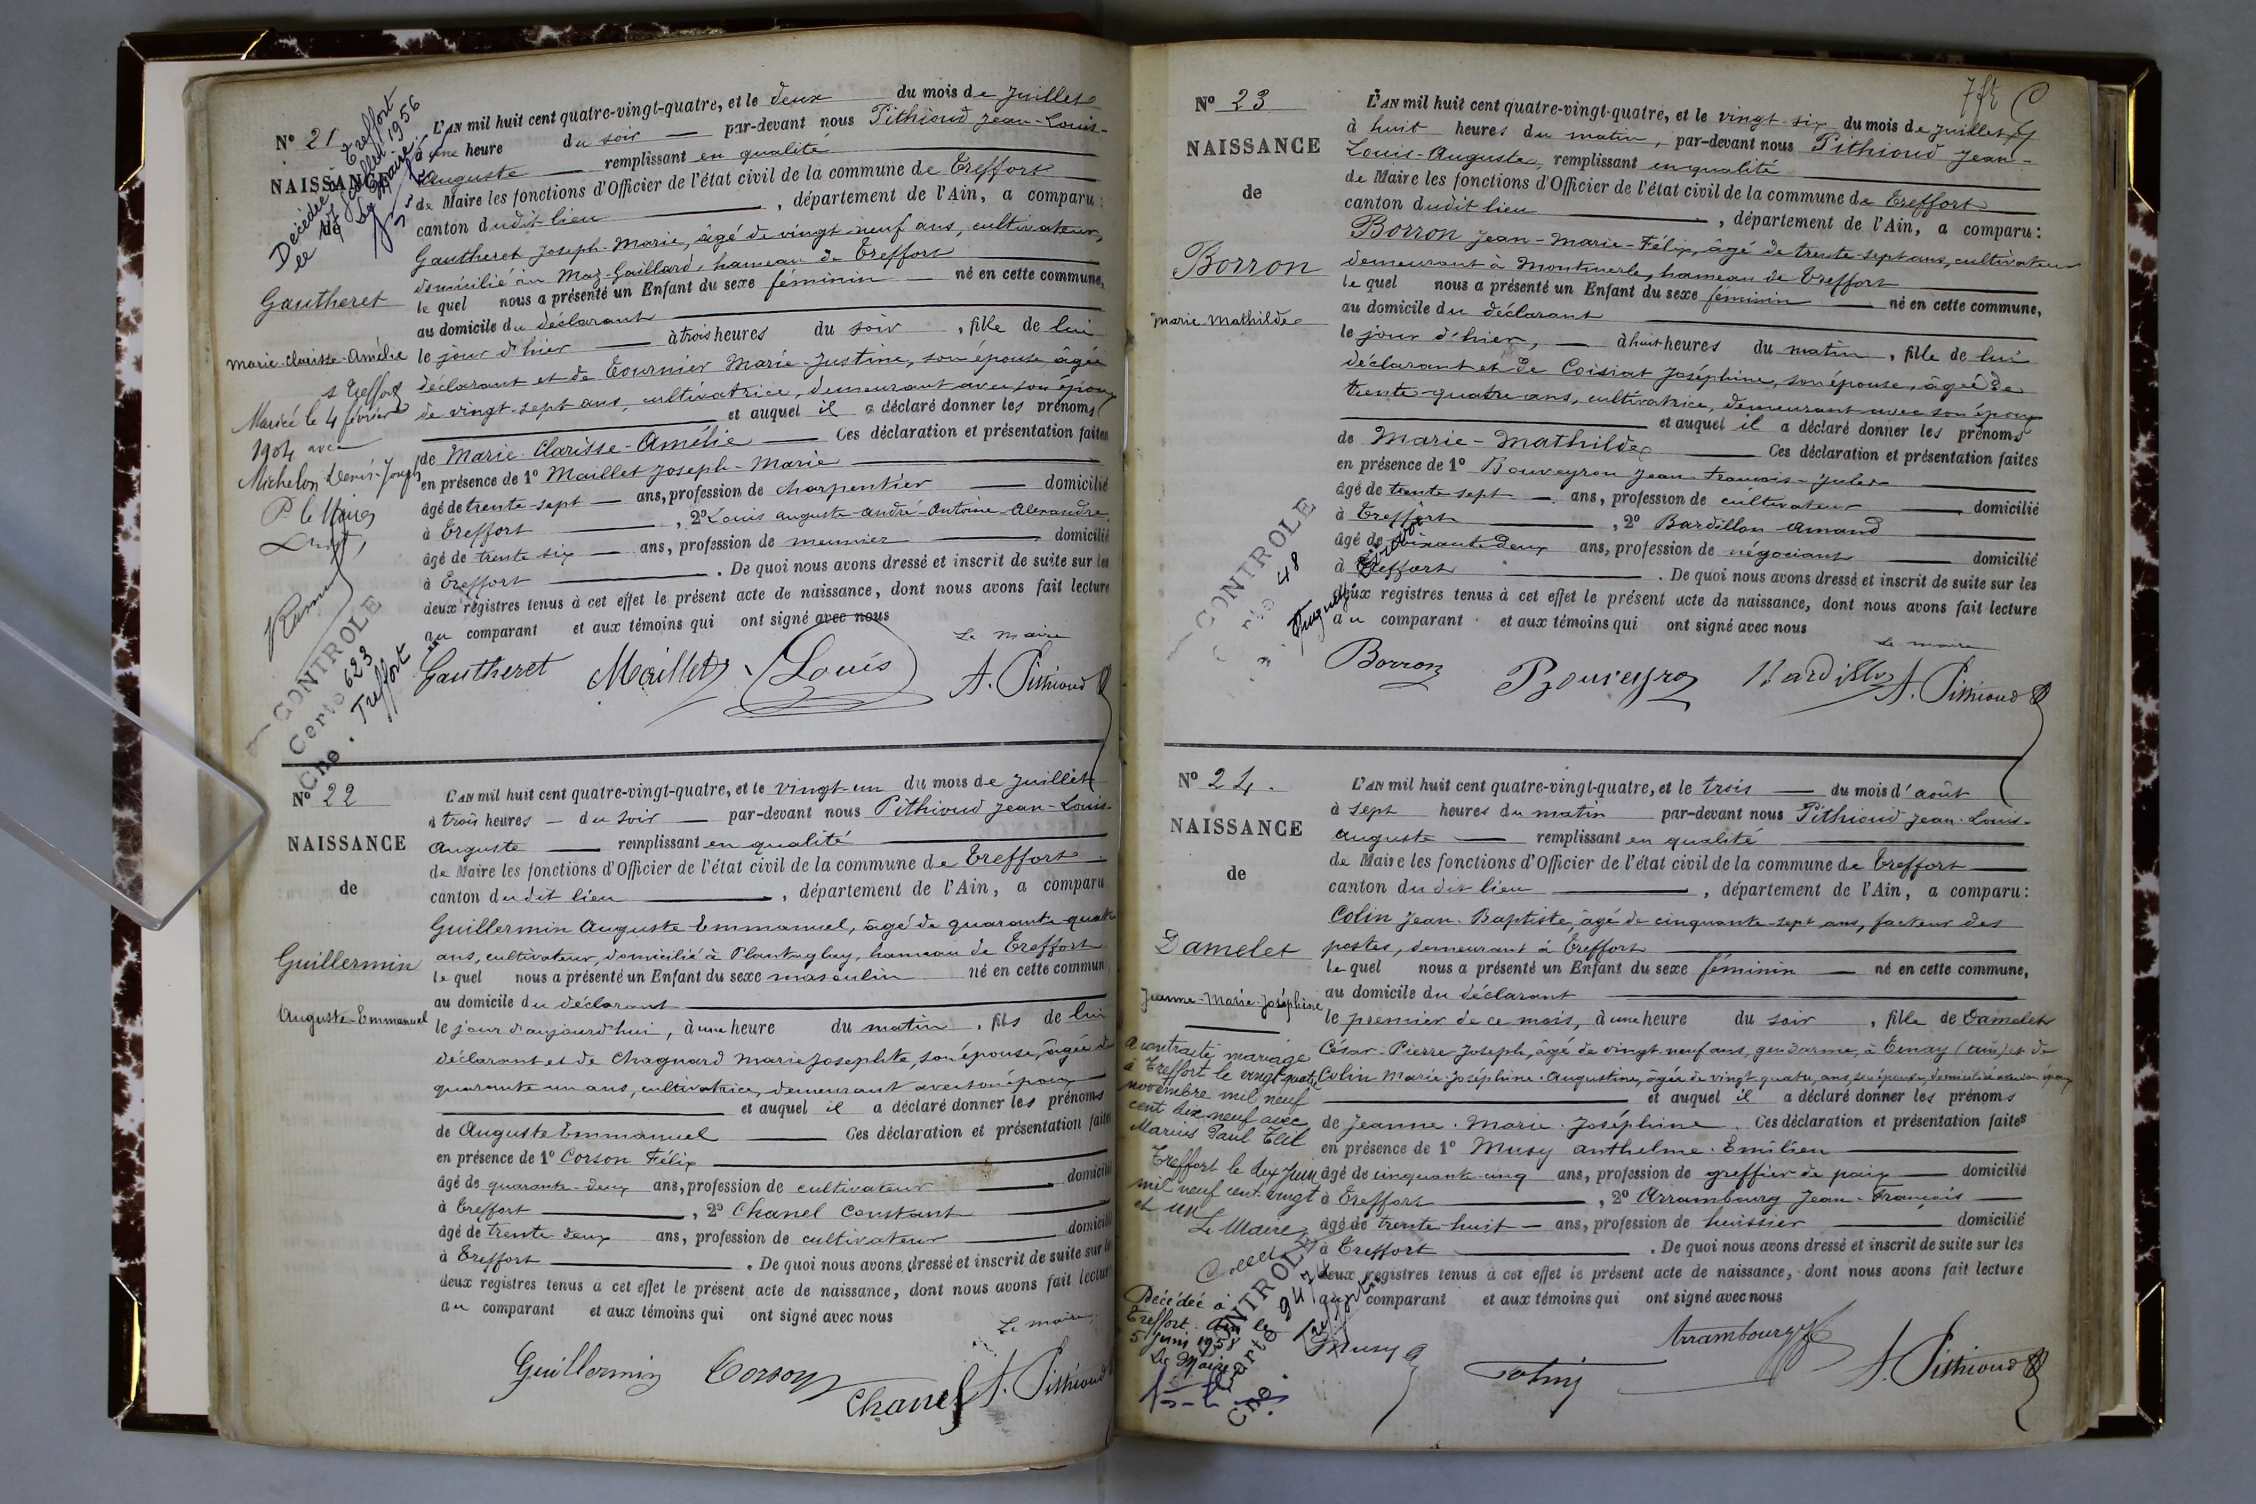 N° 21
NAISSANCE
Décédée à Treffort
juillet 1956
Le Maire
Gautheret
Marie-Clarisse-Amélie
à Treffort
Mariée le 4 février
1904 avec
Michelon Denis-Joseph
P. le Maire
CONTROLE
Carte 623
Cne. Treffort
L'AN mil huit cent quatre-vingt-quatre, et le deux du mois de Juillet
à une heure du soir par-devant nous Pithioud Jean-Louis-
Auguste remplissant en qualité
de Maire les fonctions d'Officier de l'état civil de la commune de Treffort
canton dudit lieu, département de l'Ain, a comparu:
Gautheret Joseph-Marie, âgé de vingt neuf ans, cultivateur,
domicilié au Maz-Gaillard, hameau de Treffort
le quel nous a présenté un Enfant du sexe féminin né en cette commune,
au domicile du déclarant
le jour d'hier à trois heures du soir, fille de lui
déclarant et de Tournier Marie-Justine, son épouse âgée
de vingt-sept ans, cultivatrice, demeurant avec son époux
et auquel il a déclaré donner les prénoms
de Marie-Clarisse-Amélie Ces déclaration et présentation faites
en présence de 1° Maillet Joseph-Marie
âgé de trente-sept ans, profession de charpentier domicilié
à Treffort, 2° Louis Auguste-André-Antoine-Alexandre
âgé de trente six ans, profession de meunier domicilié
à Treffort. De quoi nous avons dressé et inscrit de suite sur les
deux régistres tenus à cet effet le présent acte de naissance, dont nous avons fait lecture
au comparant et aux témoins qui ont signé avec nous
Le maire
Gautheret Maillet Louis A. Pithioud
N° 22
NAISSANCE
de
Guillermin
Auguste-Emmanuel
L'AN mil huit cent quatre-vingt-quatre, et le vingt-un du mois de Juillet
à trois heures du soir par-devant nous Pithioud Jean-Louis-
Auguste remplissant en qualité
de Maire les fonctions d'Officier de l'état civil de la commune de Treffort
canton dudit lieu, département de l'Ain, a comparu
Guillermin Auguste Emmanuel, âgé de quarante quatre
ans, cultivateur, domicilié à Plantaglay, hameau de Treffort
le quel nous a présenté un Enfant du sexe masculin né en cette commun
au domicile du déclarant
le jour d'aujourd'hui, à une heure du matin, fils de lui
déclarant et de Chagnard Marie Josephte, son épouse, âgée de
quarante un ans, cultivatrice, demeurant avec son époux
et auquel il a déclaré donner les prénoms
de Auguste Emmanuel Ces déclaration et présentation faites
en présence de 1° Corson Félix
âgé de quarante-deux ans, profession de cultivateur domicilié
à Treffort, 2° Chanel Constant
âgé de trente deux ans, profession de cultivateur domicilié
à Treffort. De quoi nous avons dressé et inscrit de suite sur le
deux registres tenus à cet effet le présent acte de naissance, dont nous avons fait lectur
au comparant et aux témoins qui ont signé avec nous
Le maire,
Guillermin Corson Chanel A. Pithioud
N° 23
NAISSANCE
de
Borron
Marie Mathilde
CONTROLE
48
L'AN mil huit cent quatre-vingt-quatre, et le vingt-six du mois de Juillet
à huit heures du matin, par-devant nous Pithioud Jean-
Louis-Auguste, remplissant en qualité
de Maire les fonctions d'Officier de l'état civil de la commune de Treffort
canton dudit lieu, département de l'Ain, a comparu:
Borron Jean-Marie-Félix, âgé de trente-sept ans, cultivateur
demeurant à Montmerle, hameau de Treffort
le quel nous a présenté un Enfant du sexe féminin né en cette commune,
au domicile du déclarant
le jour d'hier, à huit heures du matin, fille de lui
déclarant et de Coisiat Joséphine, son épouse, âgée de
trente-quatre ans, cultivatrice, demeurant avec son époux
et auquel il a déclaré donner les prénoms
de Marie-Mathilde Ces déclaration et présentation faites
en présence de 1° Bouveyron Jean-François-Jules
âgé de trente sept ans, profession de cultivateur domicilié
à Treffort, 2° Bardillon Amand
âgé de soixante deux ans, profession de négociant domicilié
à Treffort. De quoi nous avons dressé et inscrit de suite sur les
deux registres tenus à cet effet le présent acte de naissance, dont nous avons fait lecture
au comparant et aux témoins qui ont signé avec nous
Le maire
Borron Bouveyron Bardillon A. Pithioud
N° 24.
NAISSANCE
de
Damelet
Jeanne-Marie-Joséphine
a contracté mariage
à Treffort le vingt-quatre
novembre mil neuf
cent dix neuf avec
Marius Paul
Treffort le dix Juin
mil neuf cent vingt
et un
Le Maire
Décédée à
Treffort Ain le
5 Juin 1958
Le Maire
CONTROLE
Carte 947
Cne. Treffort
L'AN mil huit cent quatre-vingt-quatre, et le trois du mois d'août
à sept heures du matin par-devant nous Pithioud Jean-Louis-
Auguste remplissant en qualité
de Maire les fonctions d'Officier de l'état civil de la commune de Treffort
canton du dit lieu, département de l'Ain, a comparu:
Colin Jean-Baptiste, âgé de cinquante-sept ans, facteur des
postes, demeurant à Treffort
le quel nous a présenté un Enfant du sexe féminin né en cette commune,
au domicile du déclarant
le premier de ce mois, à une heure du soir, fille de Damelet
César-Pierre-Joseph, âgé de vingt-neuf ans, gendarme, à Tenay (ain) et de
Colin Marie-Joséphine-Augustine, âgée de vingt quatre, ans, son épouse, domiciliée avec son époux
et auquel il a déclaré donner les prénoms
de Jeanne-Marie-Joséphine. Ces déclaration et présentation faites
en présence de 1° Musy Anthelme-Emilien
âgé de cinquante-cinq ans, profession de greffier de paix domicilié
à Treffort, 2° Arrambourg Jean-François
âgé de trente-huit ans, profession de huissier domicilié
à Treffort. De quoi nous avons dressé et inscrit de suite sur les
deux registres tenus à cet effet le présent acte de naissance, dont nous avons fait lecture
au comparant et aux témoins qui ont signé avec nous
Musy Colin Arrambourg A. Pithioud